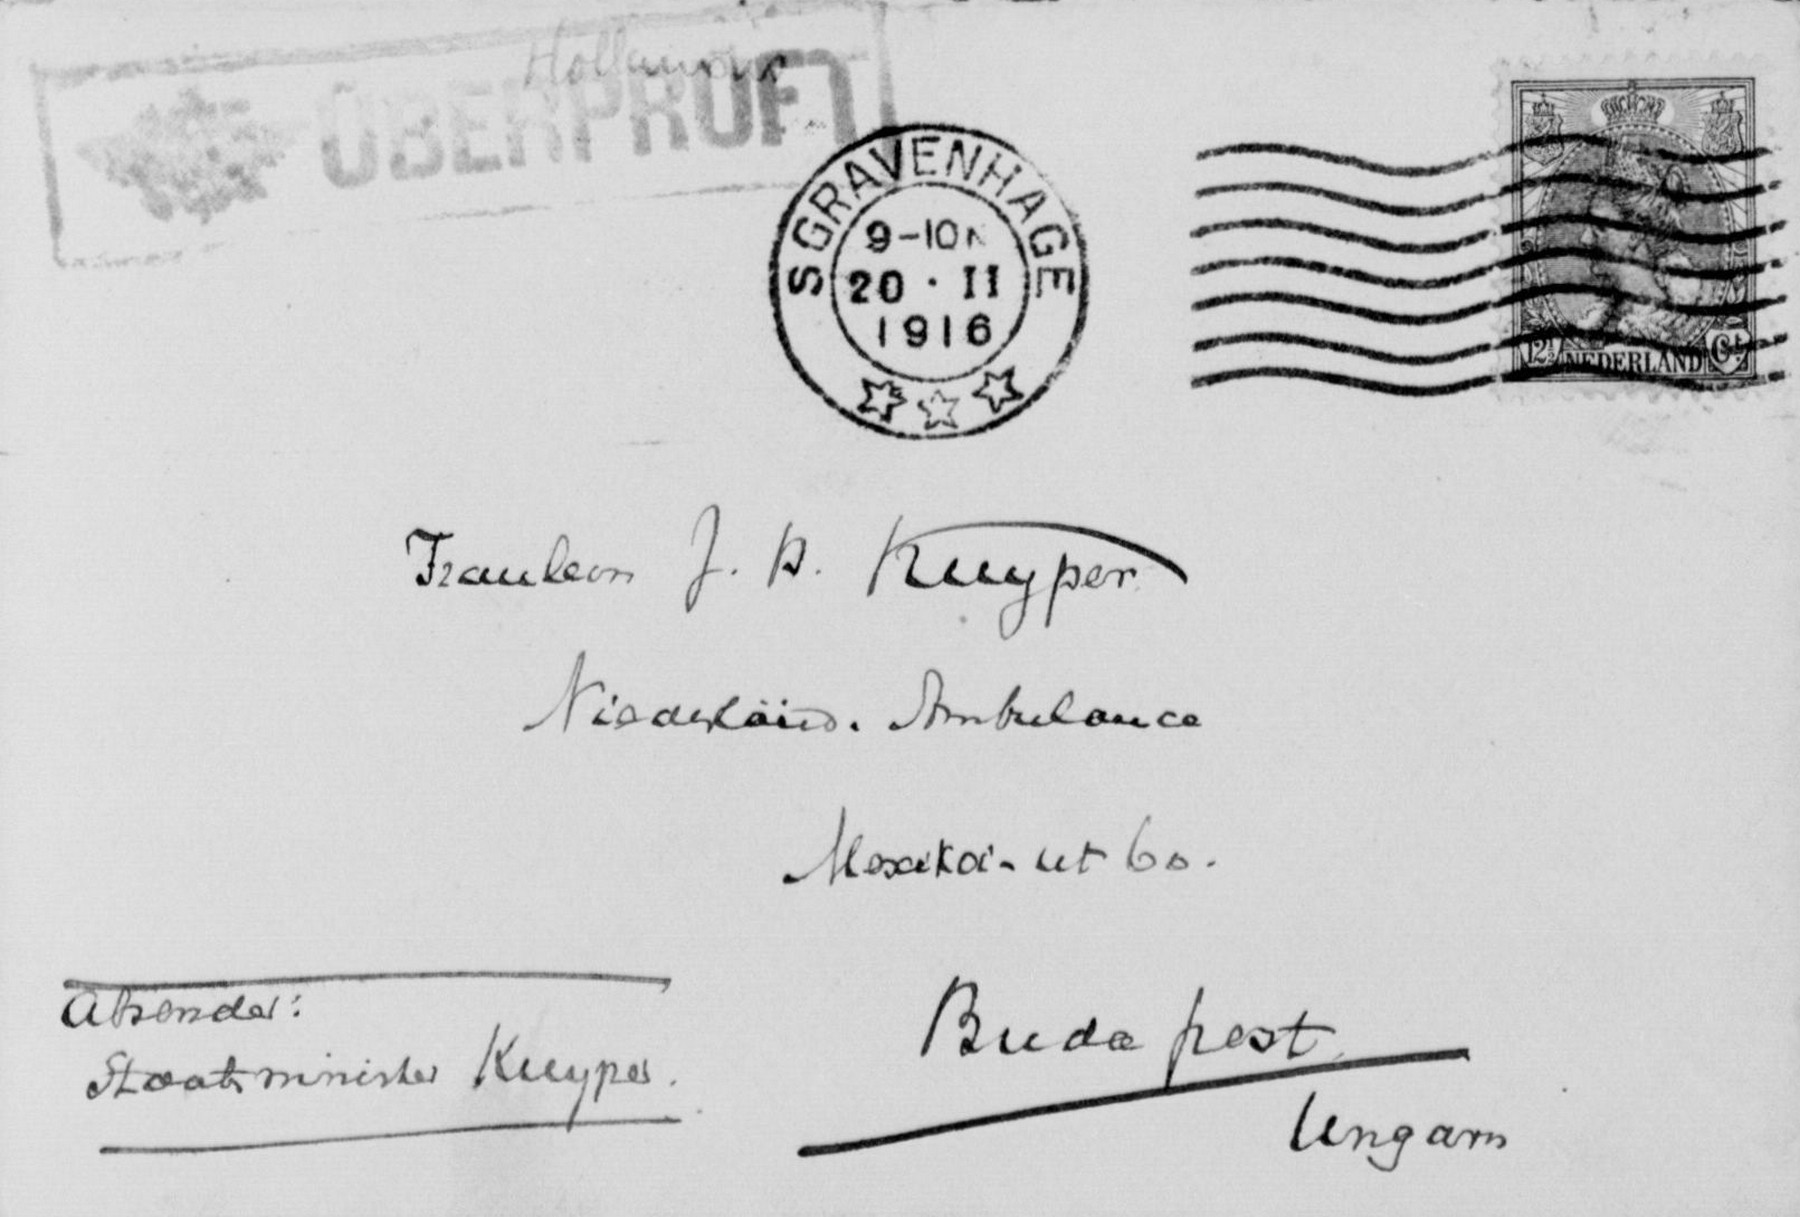 Holland
ÜBERPRÜFT
SGRAVENHAGE
9-10N
20 · II
1916
12½ NEDERLAND Ct
Fraulein J. H. Kuyper
Niederländ. Ambulance
Mexikoi-ut 60.
Budapest
Ungarn
Absender:
Staatsminister Kuyper.